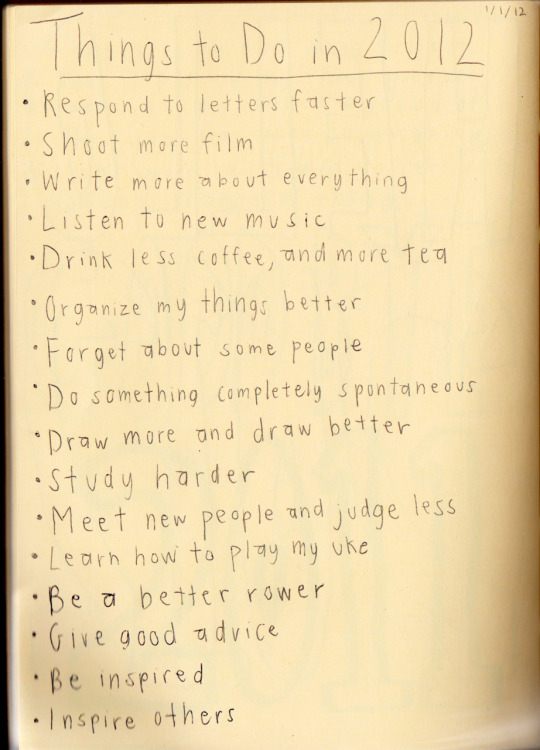 1/1/12
Things to Do in 2012
• Respond to letters faster
• Shoot more film
• Write more about everything
• Listen to new music
• Drink less coffee, and more tea
• Organize my things better
• Forget about some people
• Do something completely spontaneous
• Draw more and draw better
• Study harder
• Meet new people and judge less
• Learn how to play my uke
• Be a better rower
• Give good advice
• Be inspired
• Inspire others